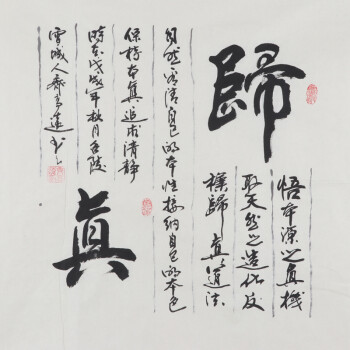 歸
悟本源之真機
取天然之造化反
樸歸真道法
自然看清自己的本性接納自己的本色
保持本真追求清靜
時在戊戌年秋月
雪城人
真